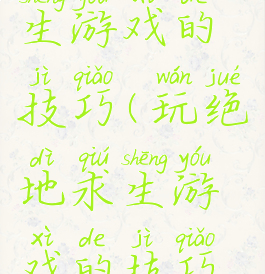 shēng yóu xì de
生游戏的
jì qiǎo wán jué
技巧(玩绝
dì qiú shēng yóu
地求生游
xì de jì qiǎo
戏的技巧